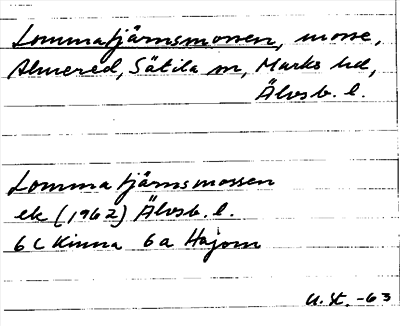 Lommatjärnsmossen, mosse,
Almered, Sätila sn, Marks hd,
Älvsb. l.
Lommatjärnsmossen
ek (1962) Älvsb. l.
6 C Kinna 6 a Hajom
U. St. -63